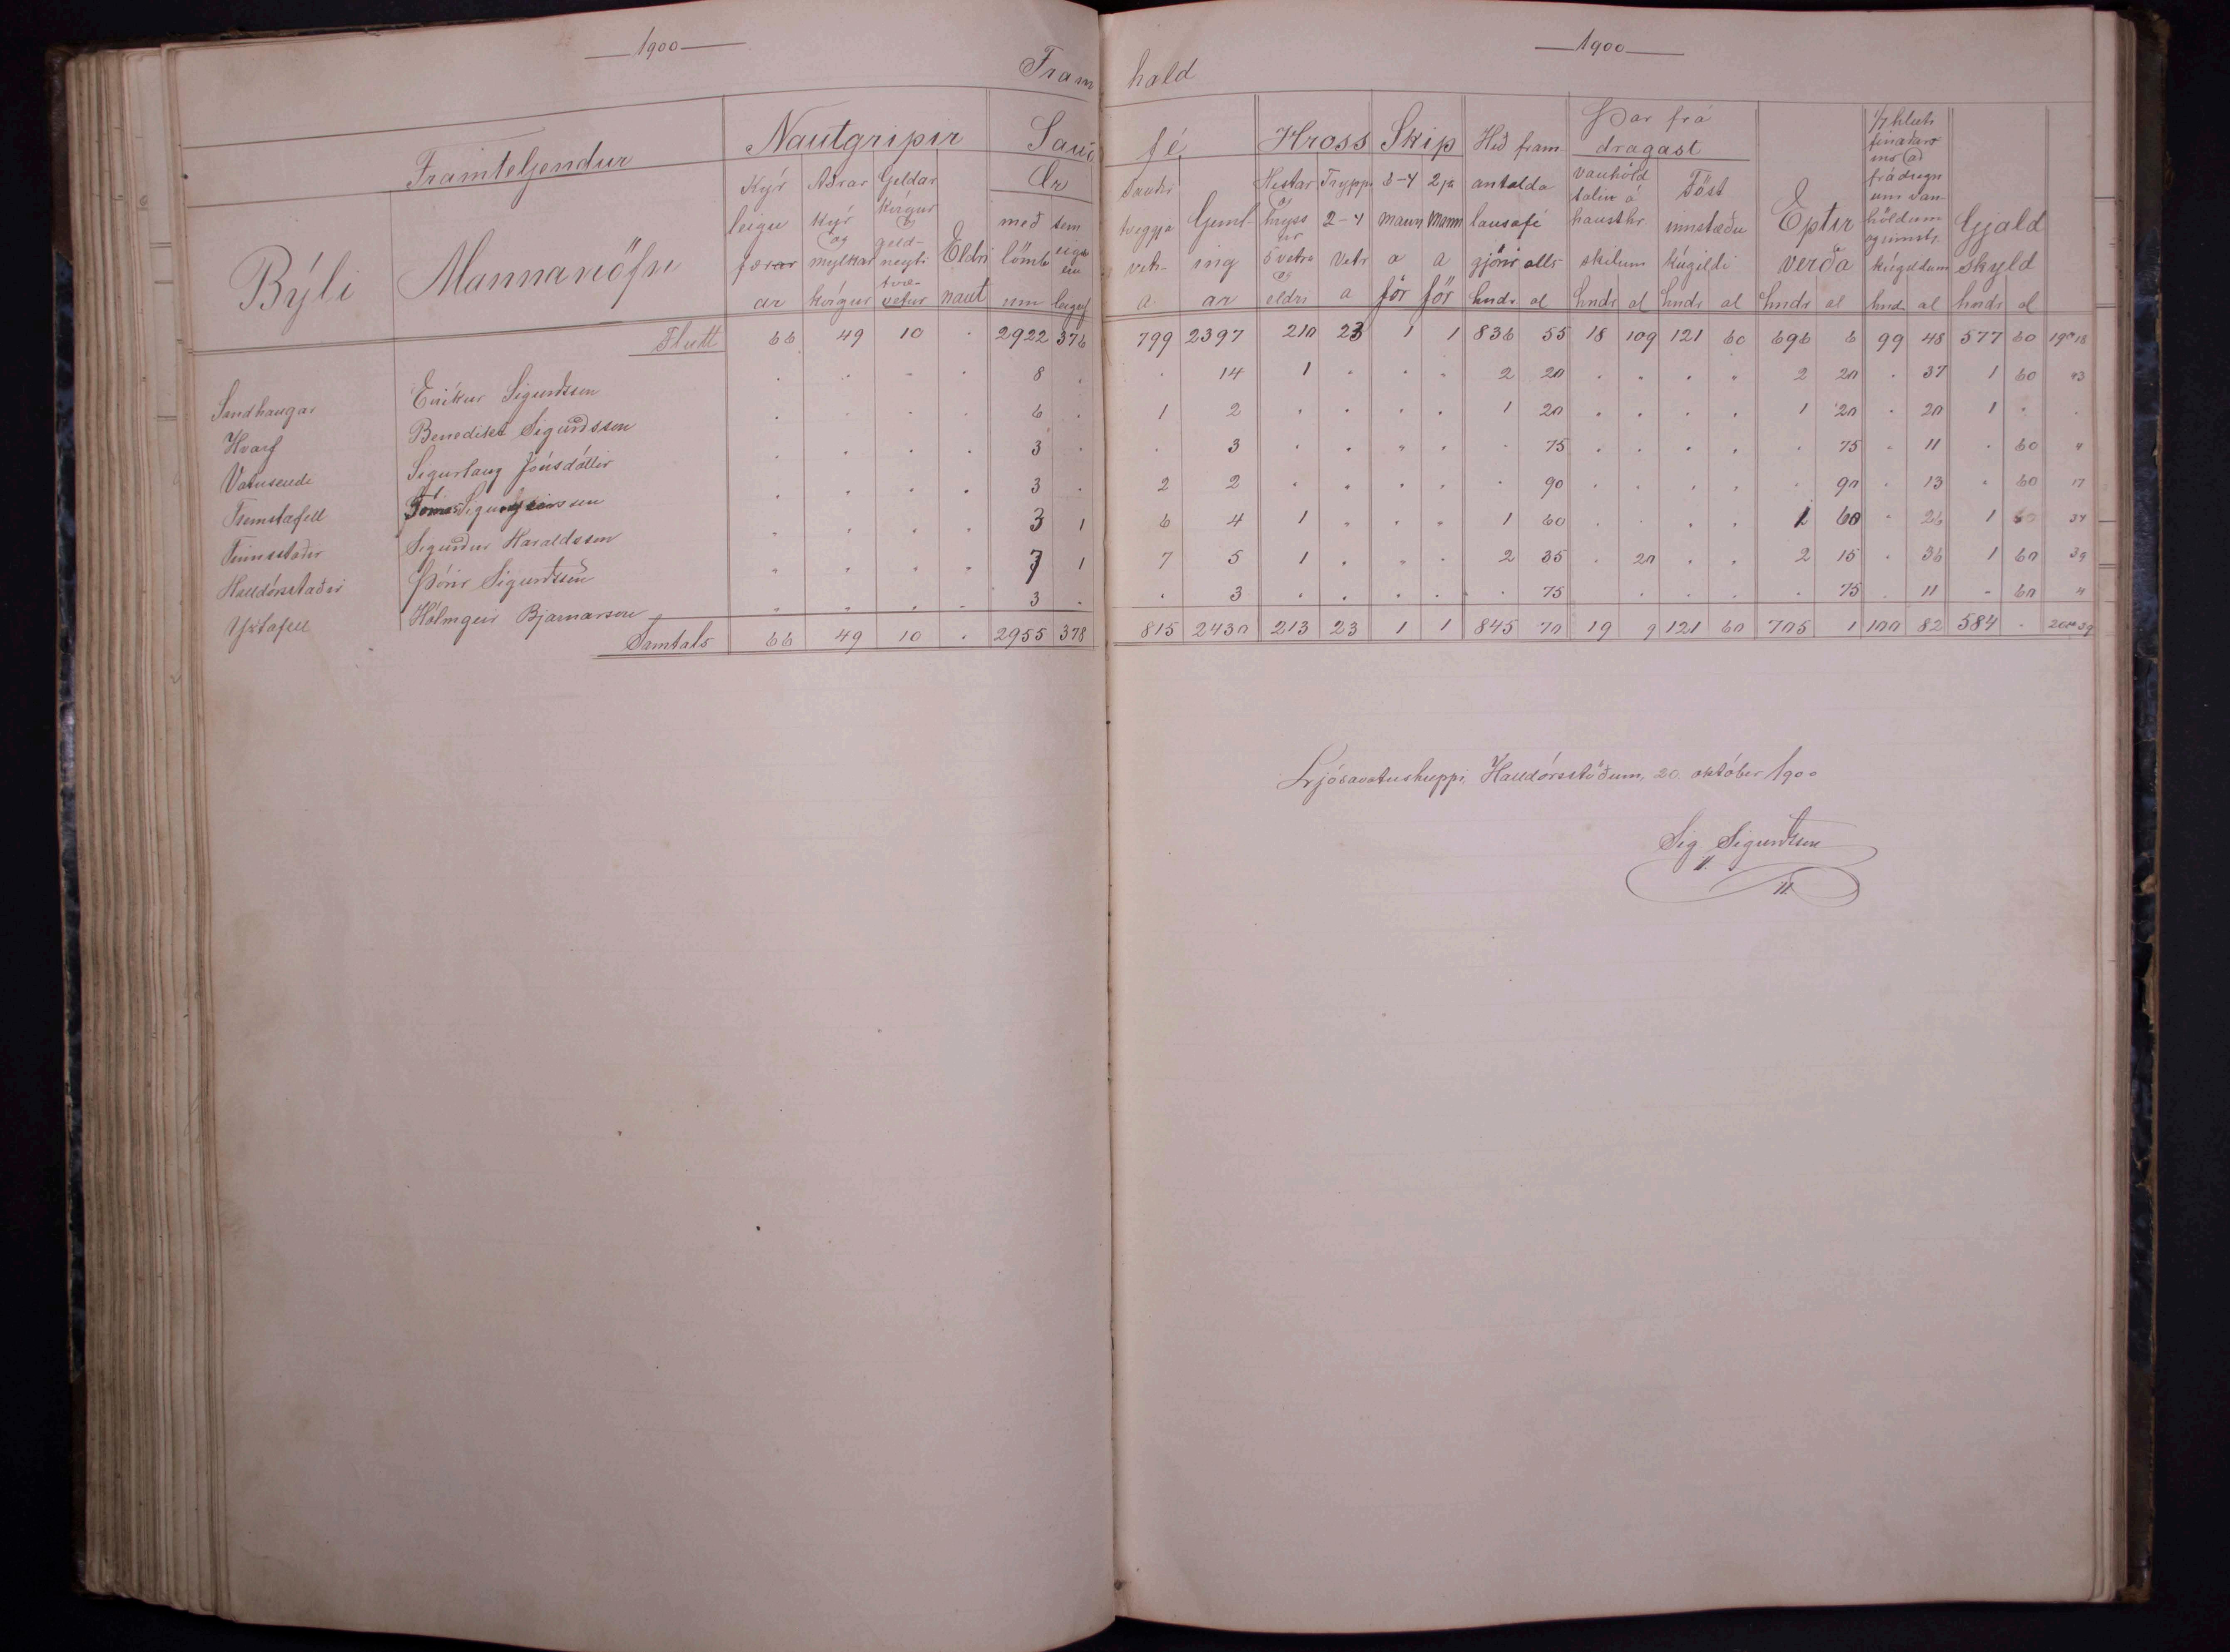 1900
1900
Fram hald
Framteljendur Nautgripir Sauð fé Hross Skip Hið fram antalda lausafé gjörir alls Þar frá dragast Eptir verða 1/7 hluti Gjald skyld
Býli Mannanöfn Kýr leigu færar Aðrar kýr og mylkar kvígur Geldar kvígur og geld-neyti tvæ-vetur Eldri naut Ær með lömbum sem eiga ei Sauðir tvegga vetra Geml-ingar Hestar og hryssur 5 vetra og eldri Trypp 2-4 vetra 3-4 manna för 2ja manna för vanhöld talin á haust hr skilum Föst innstæðu kúgildi frádregn um van höldum og innst. kúgildum
hndr al hndr al hndr al hndr al hnd al hndr al
Flutt 66 49 10 . 2922 376 799 2397 210 23 1 1 836 55 18 109 121 60 696 6 99 48 577 60
Sandhaugar Eiríkur Sigurðsson . . . . 8 . . 14 1 . . . 2 20 . . . . 2 20 . 37 1 60 43
Hvarf Benedikt Sigurðsson . . . . 6 . 1 2 . . . . 1 20 . . . . 1 20 . 20 1 . .
Vatnsendi Sigurlaug Jónsdóttir . . . . 3 . . 3 . . . . . 75 . . . . . 75 . 11 . 60 4
Fremstafell Tómas Sigurgeirsson . . . . 3 . 2 2 . . . . . 90 . . . . . 90 . 13 . 60 17
Finnsstaðir Sigurður Haraldsson . . . . 3 1 6 4 1 . . . 1 60 . . . . 1 60 . 26 1 60 34
Halldórsstaðir Þórir Sigurðsson . . . . 7 1 7 5 1 . . . 2 35 . 20 . . 2 15 . 36 1 60 39
Yztafell Hólmgeir Bjarnarson . . . . 3 . . 3 . . . . . 75 . . . . . 75 . 11 . 60 4
Samtals 66 49 10 . 2955 378 815 2430 213 23 1 1 845 70 19 9 121 60 705 1 100 82 584 .
Ljósavatnshreppi, Halldórsstöðum, 20. október 1900
Sig. Sigurðsson